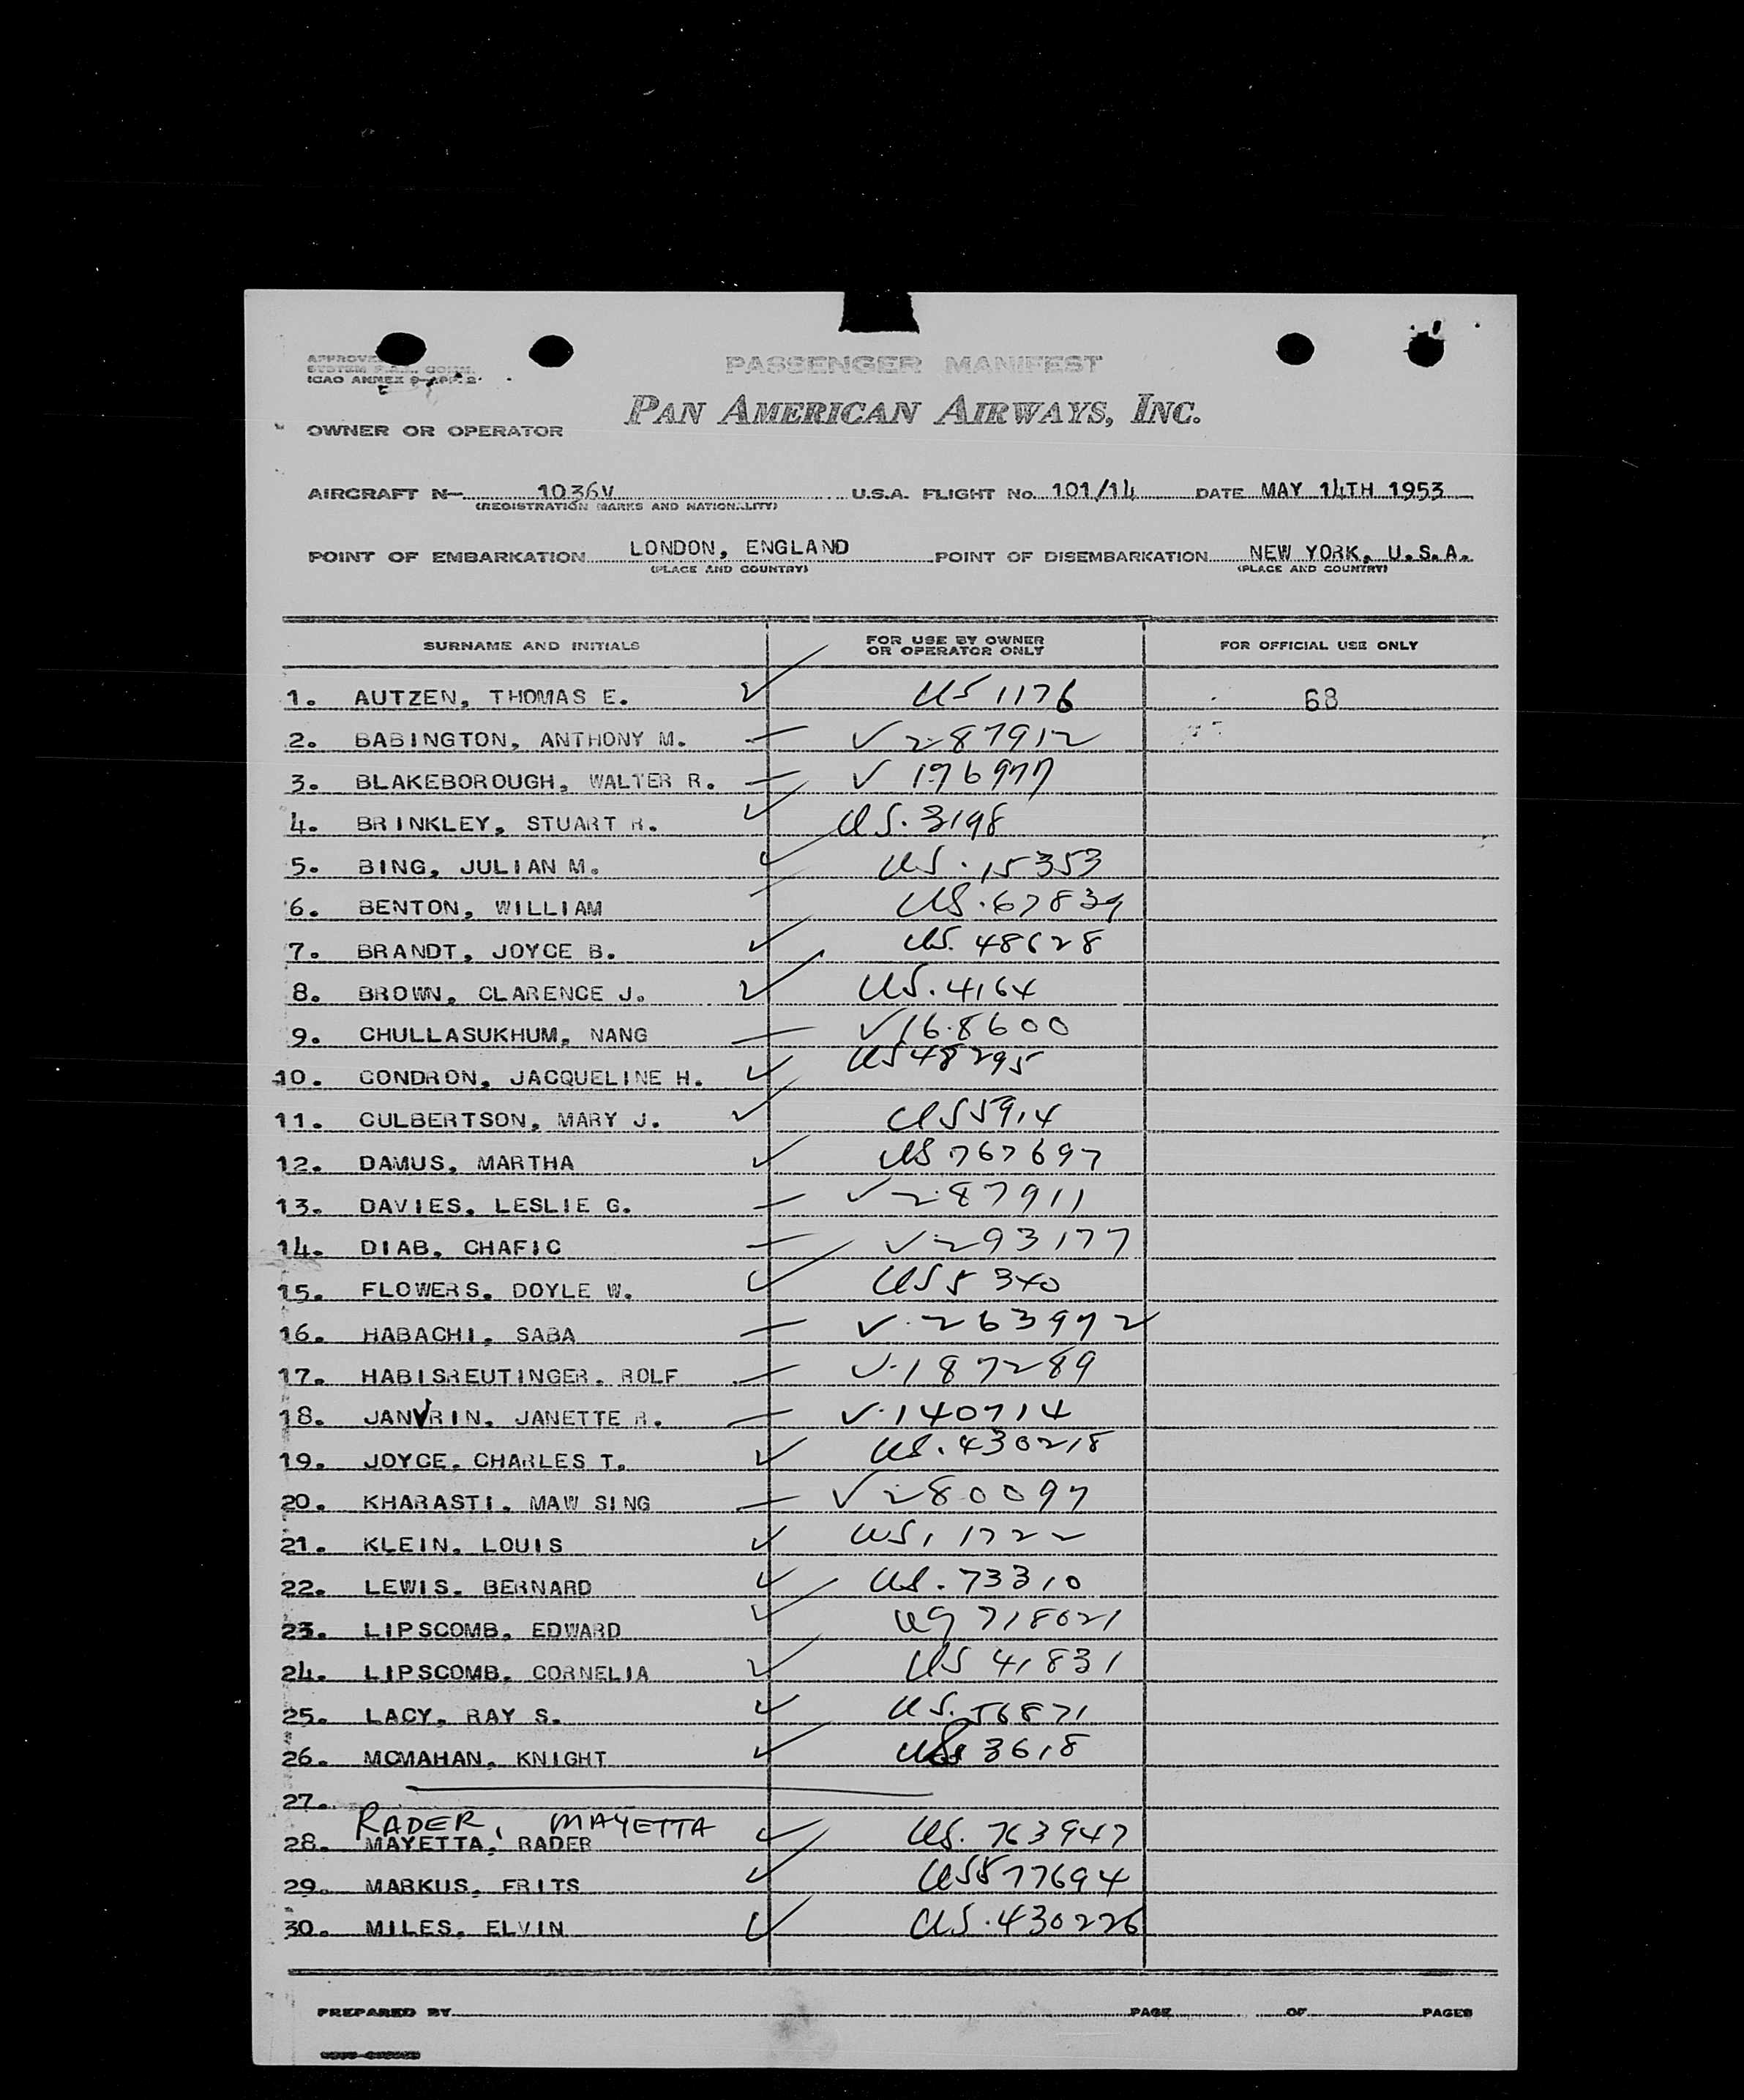 PASSENGER MANIFEST
ICAO ANNEX 9-APP. 2
PAN AMERICAN AIRWAYS, INC.
OWNER OR OPERATOR
AIRCRAFT N- 1036V U.S.A. FLIGHT No. 101/14 DATE MAY 14TH 1953
(REGISTRATION MARKS AND NATIONALITY)
POINT OF EMBARKATION LONDON, ENGLAND POINT OF DISEMBARKATION NEW YORK, U.S.A.
(PLACE AND COUNTRY) (PLACE AND COUNTRY)
SURNAME AND INITIALS FOR USE BY OWNER OR OPERATOR ONLY FOR OFFICIAL USE ONLY
1. AUTZEN, THOMAS E. ✓ US 1176 68
2. BABINGTON, ANTHONY M. — V 287912
3. BLAKEBOROUGH, WALTER R. — V 176977
4. BRINKLEY, STUART R. ✓ US. 3198
5. BING, JULIAN M. ✓ US. 15353
6. BENTON, WILLIAM — US. 67839
7. BRANDT, JOYCE B. ✓ US. 48628
8. BROWN, CLARENCE J. ✓ US. 4164
9. CHULLASUKHUM, NANG — V 16.8600
10. CONDRON, JACQUELINE H. ✓ US 48295
11. CULBERTSON, MARY J. ✓ US 5914
12. DAMUS, MARTHA ✓ US 767697
13. DAVIES, LESLIE G. — V 287911
14. DIAB, CHAFIC — V 293177
15. FLOWERS, DOYLE W. ✓ US 5340
16. HABACHI, SABA — V. 263972
17. HABISREUTINGER, ROLF — V. 187289
18. JANVRIN, JANETTE R. — V. 140714
19. JOYCE, CHARLES T. ✓ US. 430218
20. KHARASTI, MAW SING — V 280097
21. KLEIN, LOUIS ✓ US, 1722
22. LEWIS, BERNARD ✓ US. 73310
23. LIPSCOMB, EDWARD ✓ US 718021
24. LIPSCOMB, CORNELIA ✓ US 41831
25. LACY, RAY S. ✓ US. 56871
26. MCMAHAN, KNIGHT ✓ US 3618
27.
RADER, MAYETTA
28. MAYETTA, RADER ✓ US. 763947
29. MARKUS, FRITS ✓ US 577694
30. MILES, ELVIN ✓ US. 430226
PREPARED BY PAGE OF PAGES